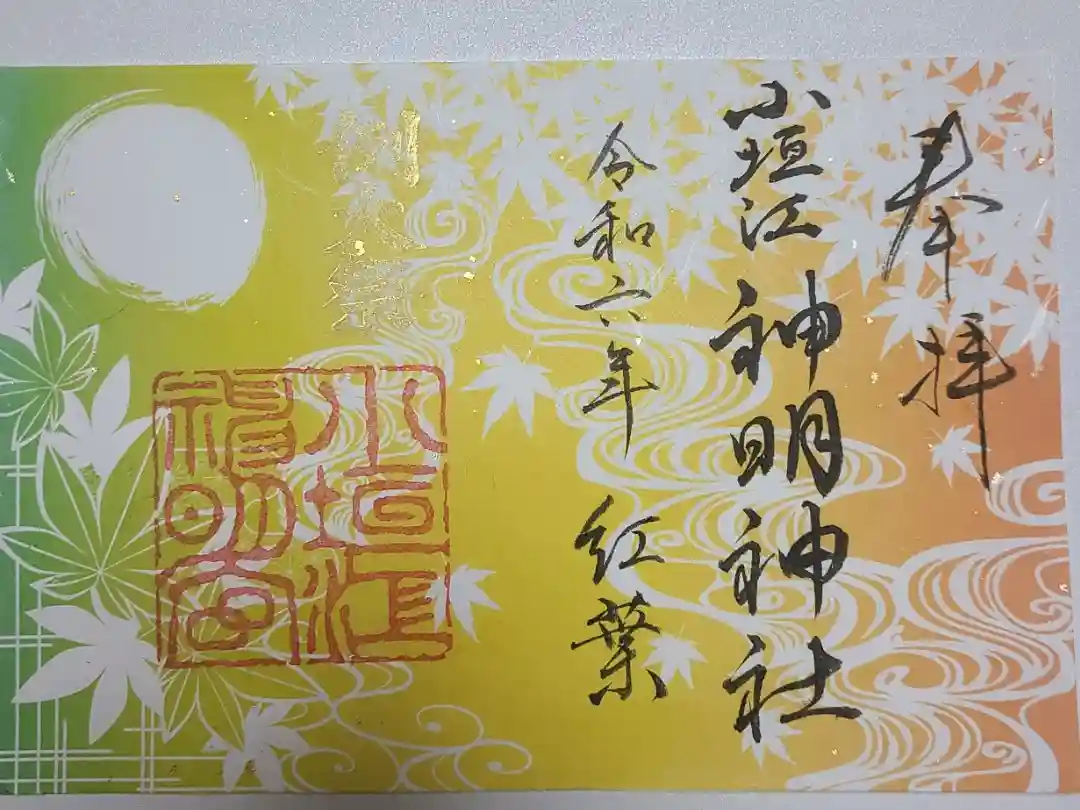 奉拝
小垣江神明神社
令和六年 紅葉
小垣江
神明宮